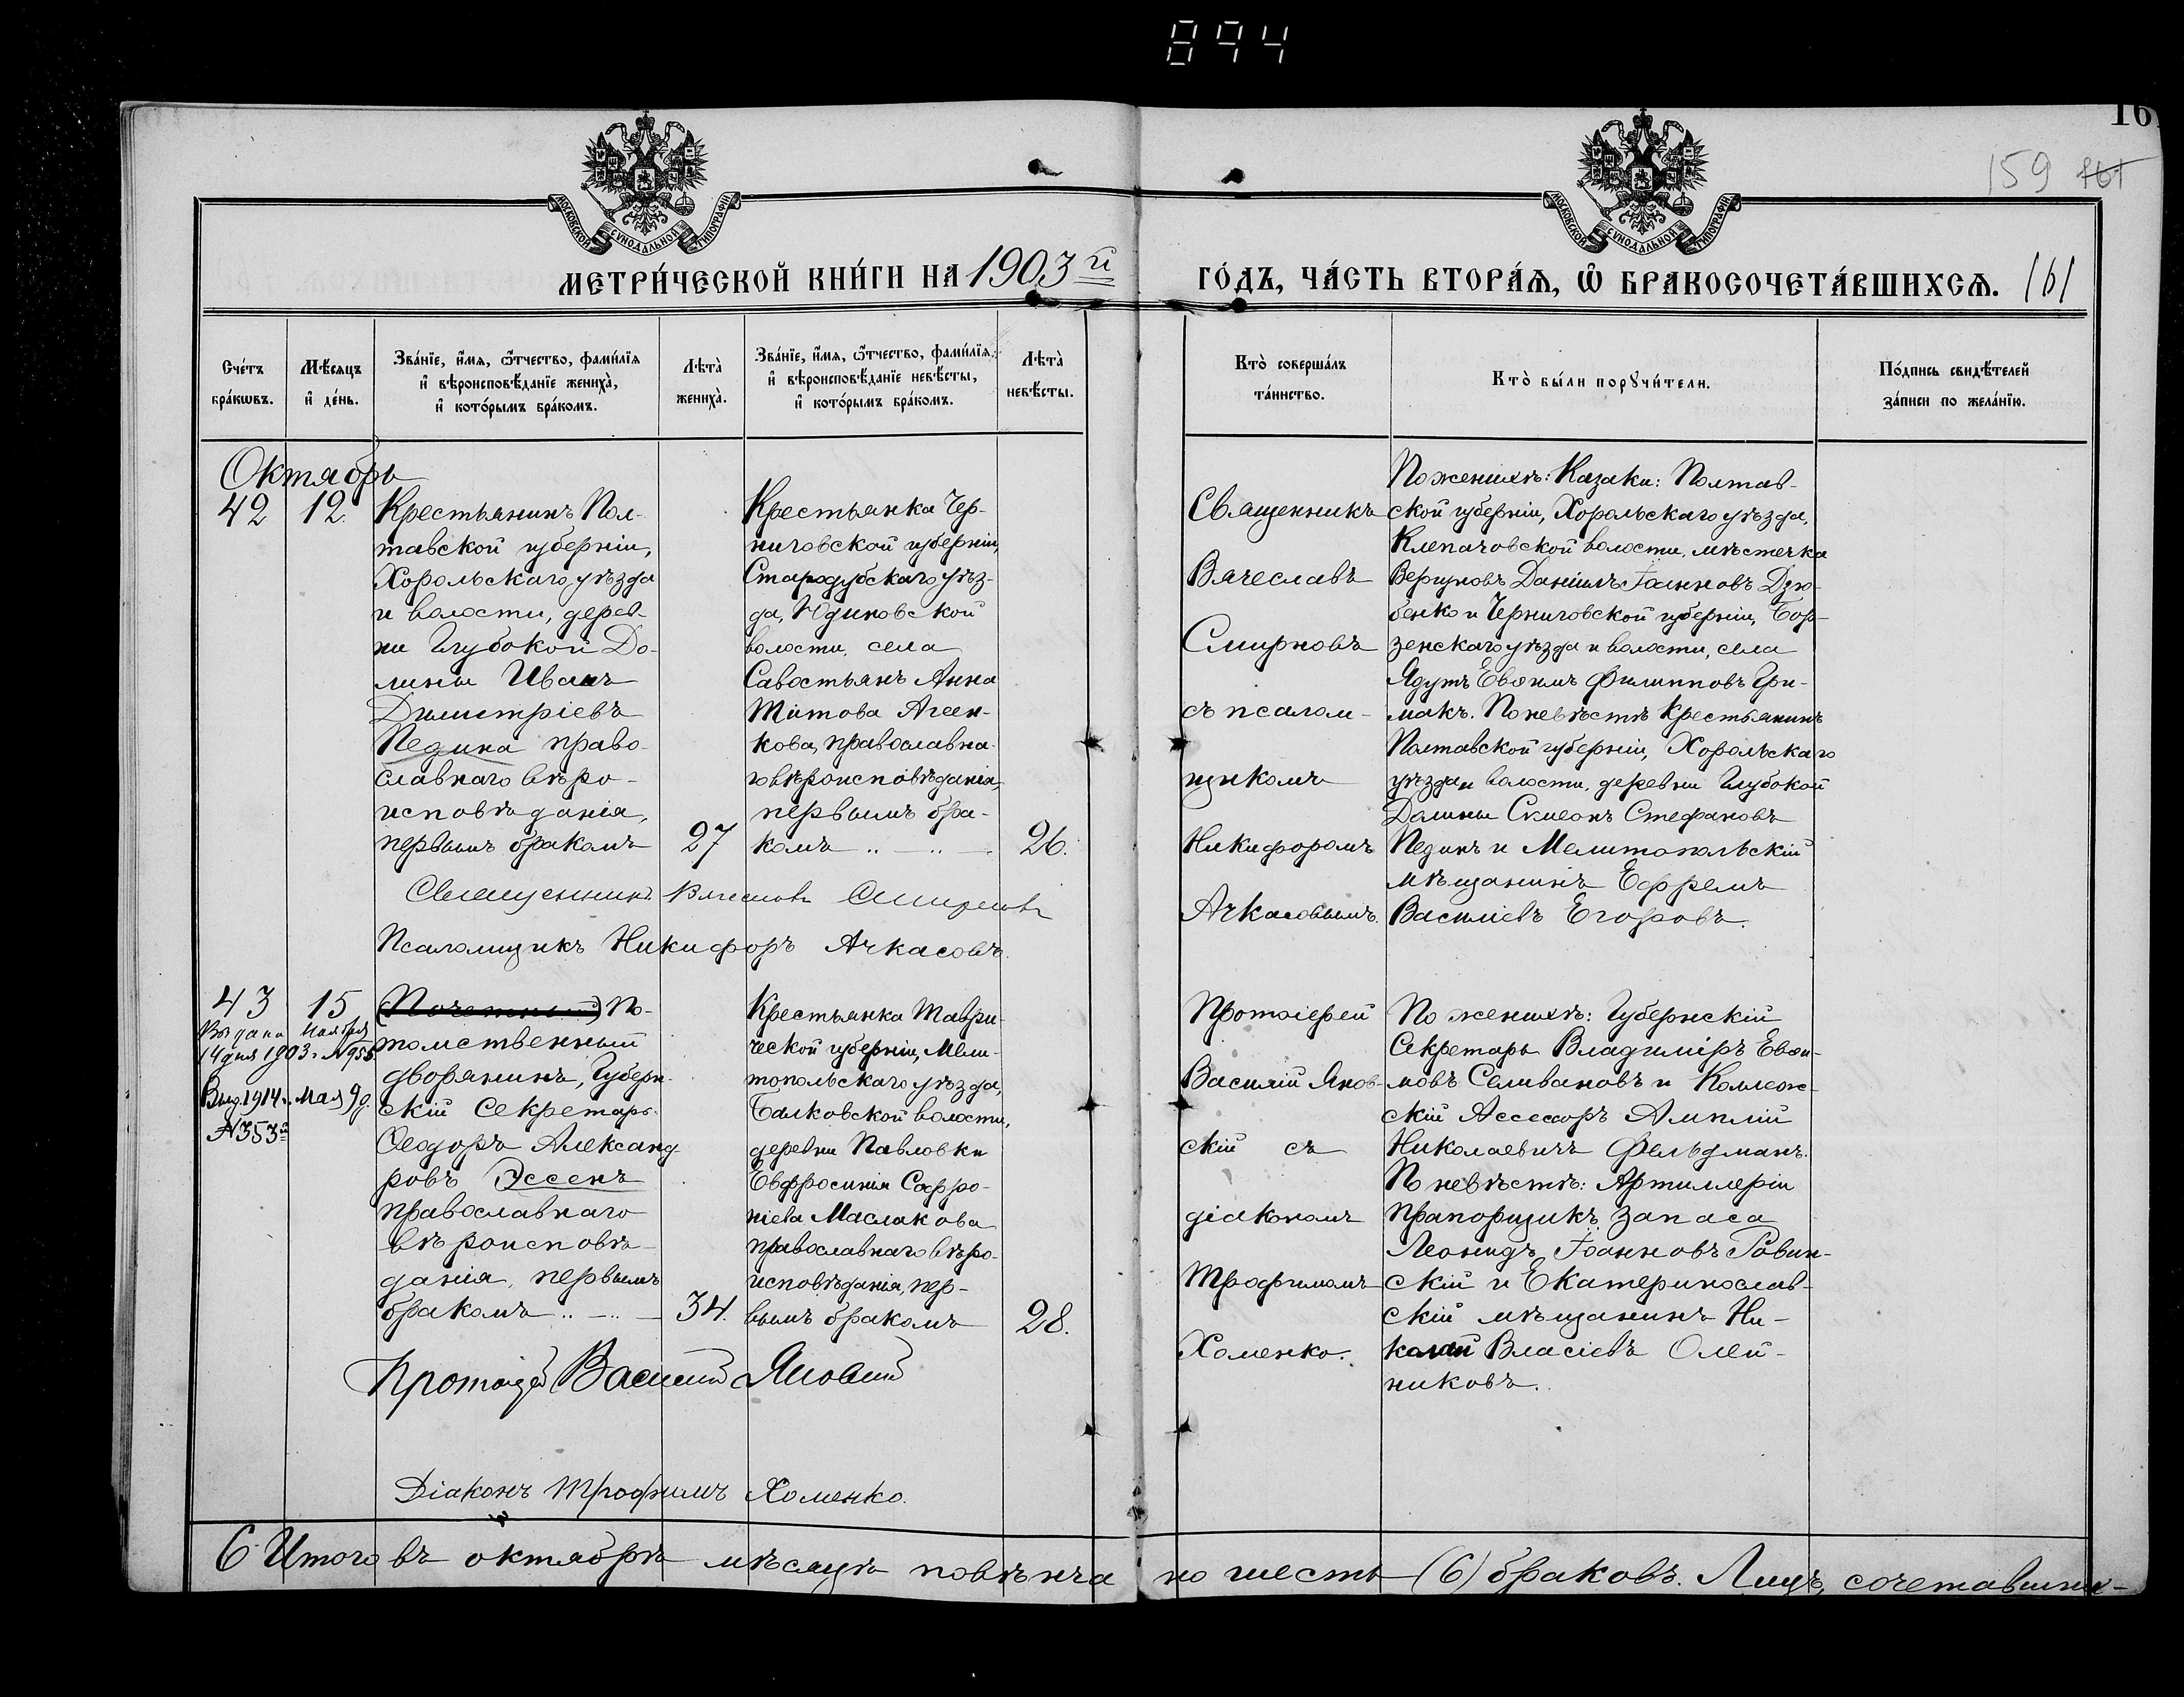 894
16
159 161
МОСКОВСКОЙ СѴНОДАЛЬНОЙ ТИПОГРАФІИ
МОСКОВСКОЙ СѴНОДАЛЬНОЙ ТИПОГРАФІИ
МЕТРИ́ЧЕСКОЙ КНИ́ГИ НА 1903й
ГО́ДЪ, ЧА́СТЬ ВТОРА́Ѧ, Ѡ БРАКОСОЧЕТА́ВШИХСѦ. 161
Сче́тъ
бра́кѡвъ.
Мѣ́сяцъ
и҆ де́нь.
Зва́нїе, и҆́мѧ, ѻ҆́тчество, фами́лїѧ
и҆ вѣроисповѣ́данїе жениха̀,
и҆ кото́рымъ бра́комъ.
Лѣта̀
жениха̀.
Зва́нїе, и҆́мѧ, ѻ҆́тчество, фами́лїѧ,
и҆ вѣроисповѣ́данїе невѣ́сты,
и҆ кото́рымъ бра́комъ.
Лѣта̀
невѣ́сты.
Кто̀ соверша́лъ
та́инство.
Кто̀ бы́ли порꙋчи́тели.
По́дпись свидѣ́телей
за́писи по жела́нїю.
Октябрь
42
12.
Крестьянинъ Пол-
тавской губерніи,
Хорольскаго уѣзда
и волости, дерев-
ни Глубокой До-
лины Иванъ
Димитріевъ
Педина право-
славнаго вѣро-
исповѣданія,
первымъ бракомъ
27
Крестьянка Чер-
ниговской губерніи,
Стародубскаго уѣз-
да, Юдиновской
волости, села
Савостьянъ Анна
Тітова Агеен-
кова, православна-
го вѣроисповѣданія,
первымъ бра-
комъ
26.
Священникъ
Вячеславъ
Смирновъ
съ псалом-
щикомъ
Никифоромъ
Ачкасовымъ.
По женихѣ: Казаки: Полтав-
ской губерніи, Хорольскаго уѣзда,
Клепачовской волости, мѣстечка
Вергуновъ Даніилъ Іоанновъ Дзю-
бенко и Черниговской губерніи, Бор-
зенскаго уѣзда и волости, села
Ядутъ Евѳимъ Филипповъ Гри-
макъ. По невѣстѣ Крестьянинъ
Полтавской губерніи, Хорольскаго
уѣзда и волости, деревни Глубокой
Долины Симеонъ Стефановъ
Педикъ и Мелитопольскій
мѣщанинъ Ефремъ
Василіевъ Егоровъ.
Священникъ Вячеславъ Смирновъ
Псаломщикъ Никифоръ Ачкасовъ.
43
15
Выдано Ноября
14 дня 1903 г. №955
Выд. 1914 г. Мая 9 д.
№353й
(Почетный) По-
томственный
дворянинъ, Губерн-
скій Секретарь
Ѳеодоръ Александ-
ровъ Эссенъ
православнаго
вѣроисповѣ-
данія, первымъ
бракомъ
34.
Крестьянка Таври-
ческой губерніи, Мели-
топольскаго уѣзда,
Балковской волости,
деревни Павловки
Евфросинія Софро-
ніева Маслакова
православнаго вѣро-
исповѣданія, пер-
вымъ бракомъ
28.
Протоіерей
Василій Янов-
скій съ
діакономъ
Трофимомъ
Хоменко.
По женихѣ: Губернскій
Секретарь Владиміръ Евѳи-
мовъ Селивановъ и Коллеж-
скій Ассесоръ Амплій
Николаевичъ Фельдманъ.
По невѣстѣ: Артиллеріи
Прапорщикъ запаса
Леонидъ Іоанновъ Равин-
скій и Екатеринослав-
скій мѣщанинъ Ни-
колай Власіевъ Олей-
никовъ.
Протоіерей Василій Яновскій
Діаконъ Трофимъ Хоменко.
6 Итого въ октябрѣ мѣсяцѣ повѣнча но шесть (6) браковъ. Лицъ, сочетавших-